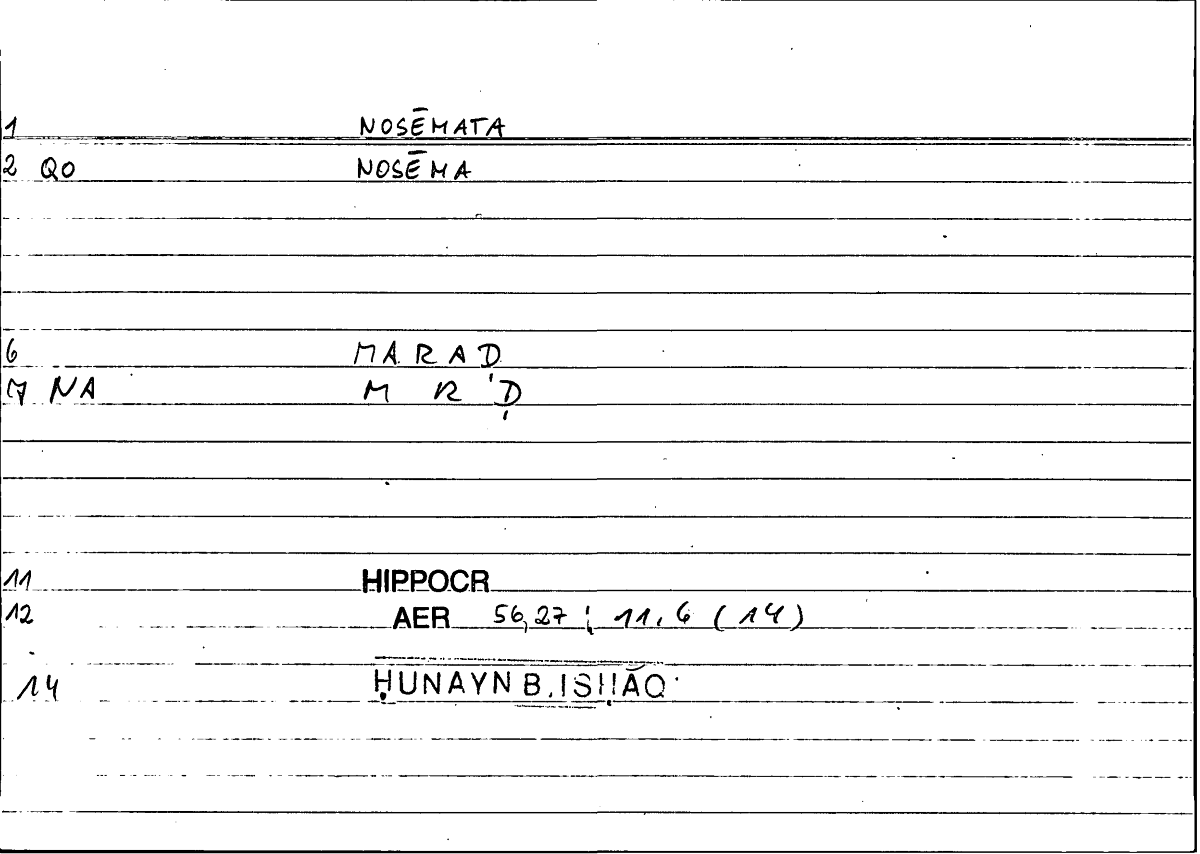 1 NOSĒMATA
2 QO NOSĒMA
6 MARAḌ
7 NA M R Ḍ
11 HIPPOCR
12 AER 56,27 ; 11,6 (14)
14 ḤUNAYN B. ISḤĀQ